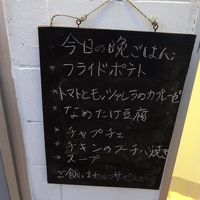 今日の晩ごはん
* フライドポテト
* トマトとモッツァレラのカプレーゼ
* なめたけ豆腐
* チャプチェ
* チキンのフーチバ焼き
* スープ
ご飯はセルフサービス